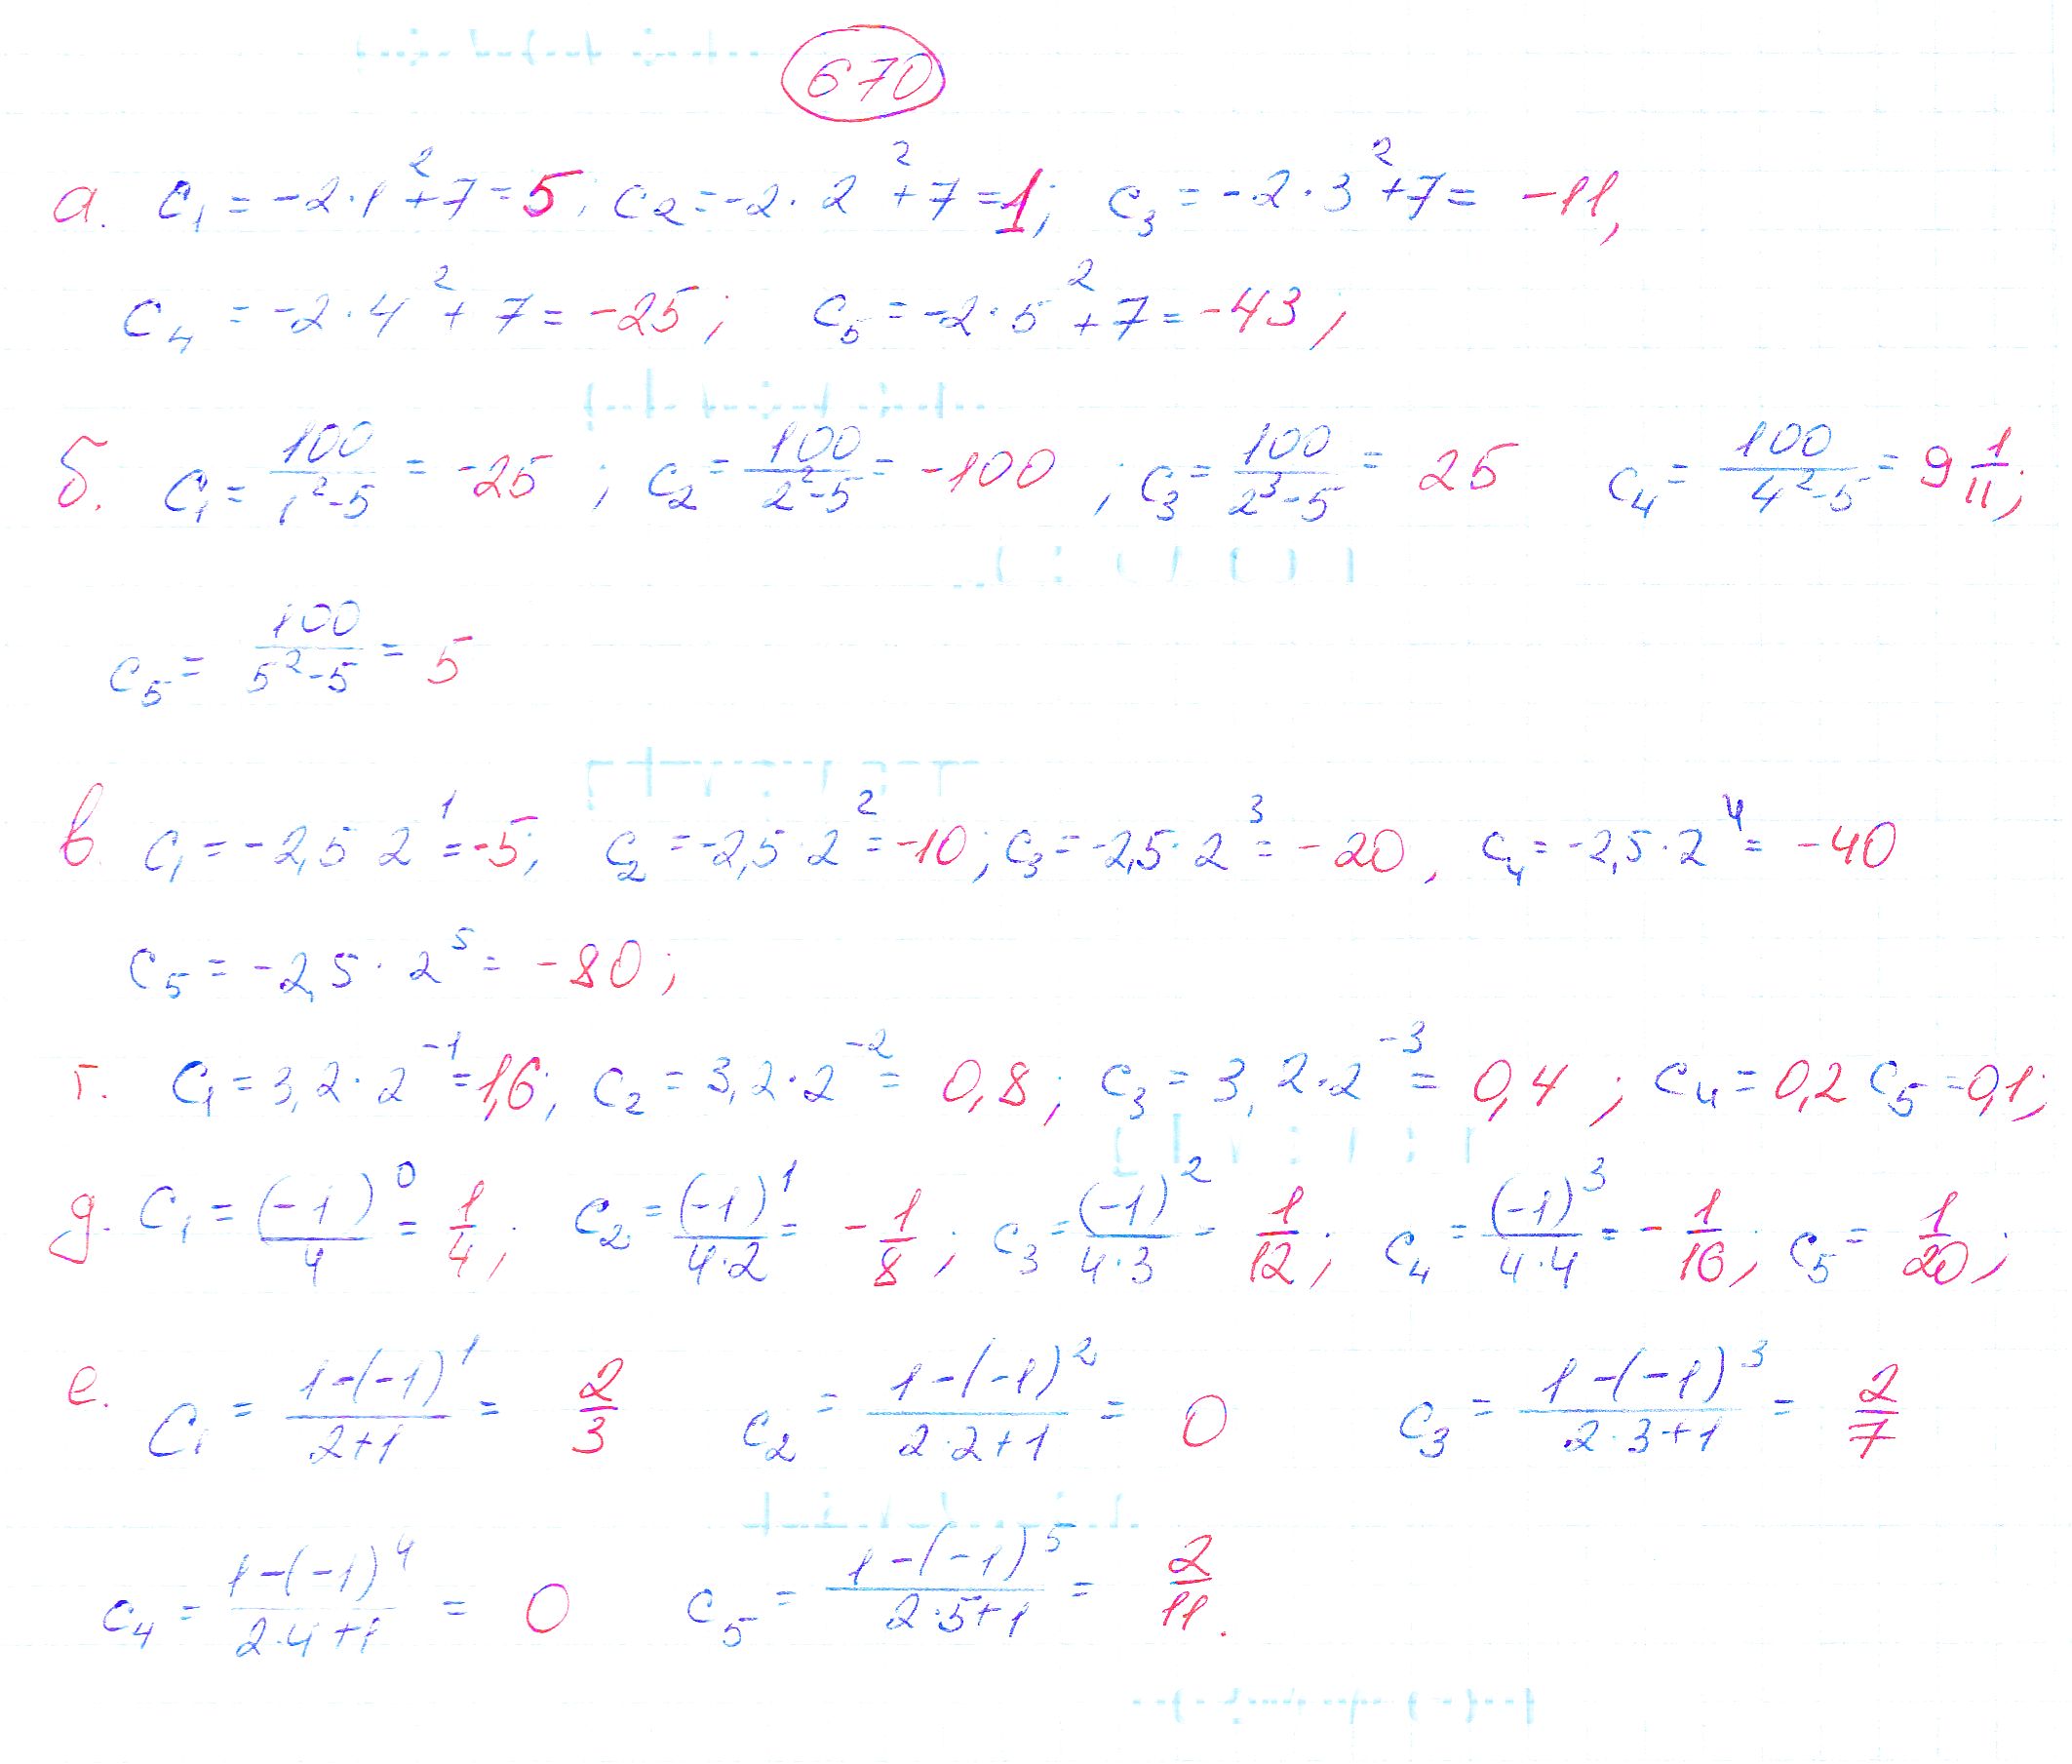 670
а. c₁ = -2·1²+7=5; c₂=-2·2²+7=1; c₃ = -2·3²+7= -11,
c₄ = -2·4²+7= -25; c₅ = -2·5²+7= -43;
б. c₁= 100/(1²-5) = -25; c₂= 100/(2²-5) = -100; c₃= 100/(2³-5) = 25 c₄= 100/(4²-5) = 9 1/11;
c₅= 100/(5²-5) = 5
в. c₁ = -2,5 2¹=-5; c₂ =-2,5·2²=-10; c₃=-2,5·2³= -20, c₄=-2,5·2⁴= -40
c₅ = -2,5·2⁵= -80;
г. c₁=3,2·2⁻¹=1,6; c₂ = 3,2·2⁻²= 0,8; c₃ = 3,2·2⁻³= 0,4; c₄=0,2 c₅=0,1;
д. c₁ = (-1)⁰/4 = 1/4; c₂ = (-1)¹/(4·2) = -1/8; c₃ = (-1)²/(4·3) - 1/12; c₄ = (-1)³/(4·4) = -1/16; c₅ = 1/20;
е. c₁ = (1-(-1)¹)/(2+1) = 2/3 c₂ = (1-(-1)²)/(2·2+1) = 0 c₃ = (1-(-1)³)/(2·3+1) = 2/7
c₄ = (1-(-1)⁴)/(2·4+1) = 0 c₅ = (1-(-1)⁵)/(2·5+1) = 2/11.